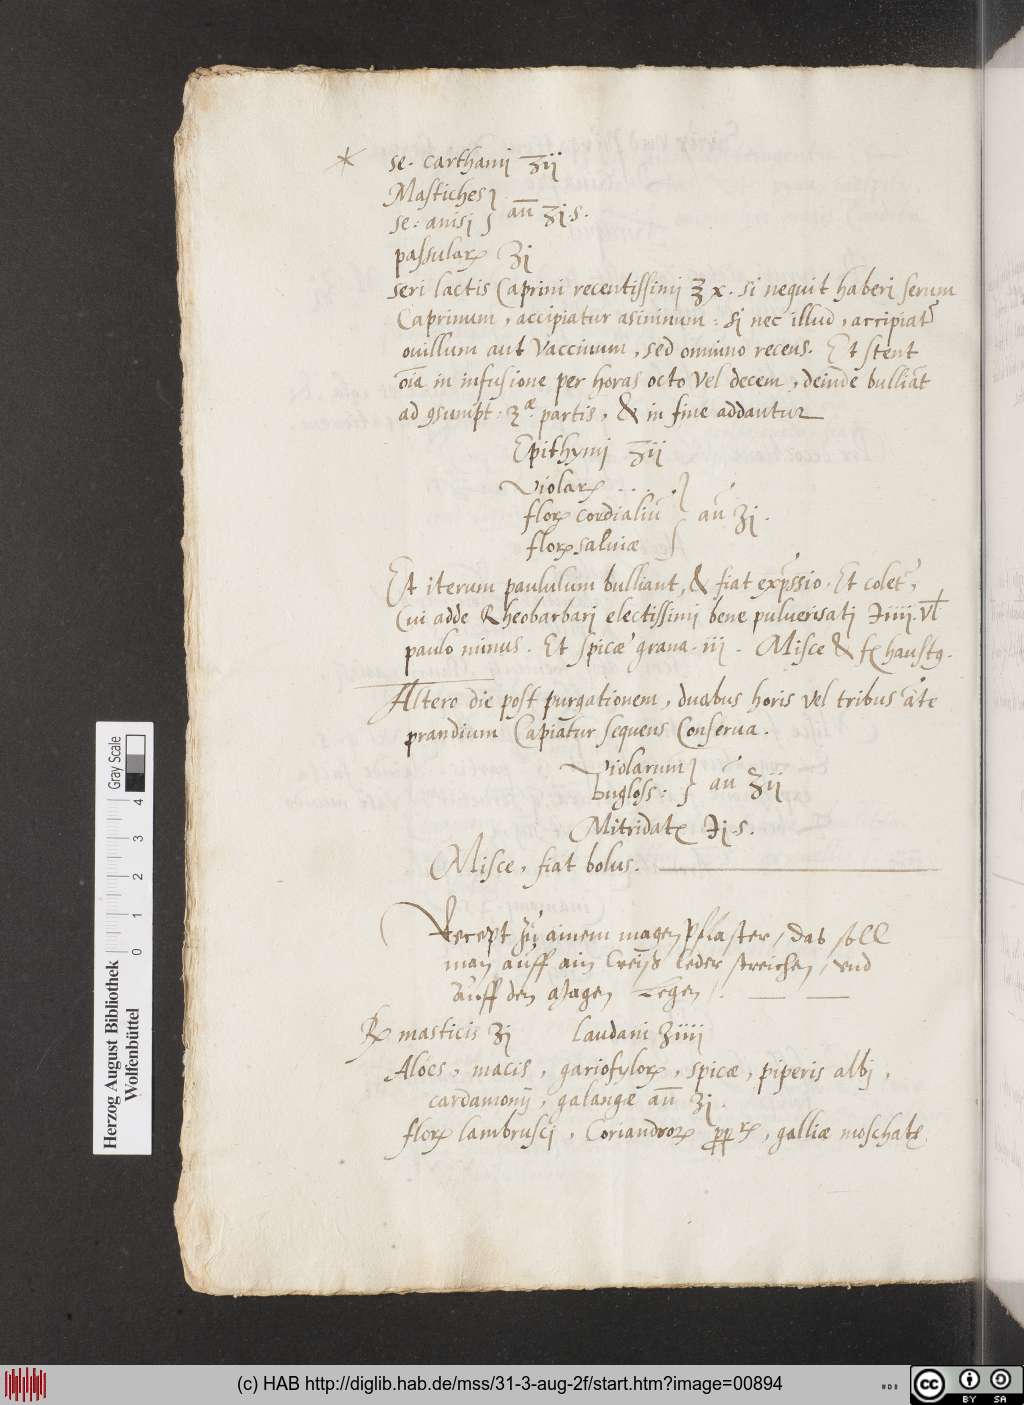 se. carthami ʒij
Mastiches
se: anisj } añ ʒj.s.
passularꝝ ℥j
seri lactis Caprini recentissimj ℥x. si nequit haberj serum
Caprinum, accipiatur asininum: sj nec illud, accipiat
ouillum aut Vaccinum, sed omnino recens. Et stent
oīa in infusione per horas octo vel decem, deinde bulliāt
ad ꝯsumpt: 3æ partis, & in fine addantur
Epithymj ʒij
Violarꝝ
florꝝ cordialiū } añ ʒj.
florꝝ saluiæ
Et iterum paululum bulliant, & fiat exp̄ssio. Et colet,
Cui adde Rheobarbarj electissimj bene puluerisatj ℈iiij. vł
paulo minus. Et spicæ grana. iij. Misce & f haustꝯ.
Altero die post purgationem, duabus horis vel tribus āte
prandium Capiatur sequens Conserua.
Violarum
bugloss: } añ ʒij
Mitridatꝭ ℈j.s.
Misce, fiat bolus.
Recept zu ainem magen Pflaster, das soll
man auff ain Creijs leder streichen, vnd
auff den Magen Legen.
℞ masticis ʒj laudani ʒiiij
Aloes, macis, gariofylorꝝ, spicæ, piperis albj,
cardamomj, galangæ añ ʒj.
florꝝ lambruscj, Coriandrorꝝ pp, galliæ moschatꝭ
Herzog August Bibliothek
Wolfenbüttel
Gray Scale
0 1 2 3 4
(c) HAB http://diglib.hab.de/mss/31-3-aug-2f/start.htm?image=00894
cc BY SA